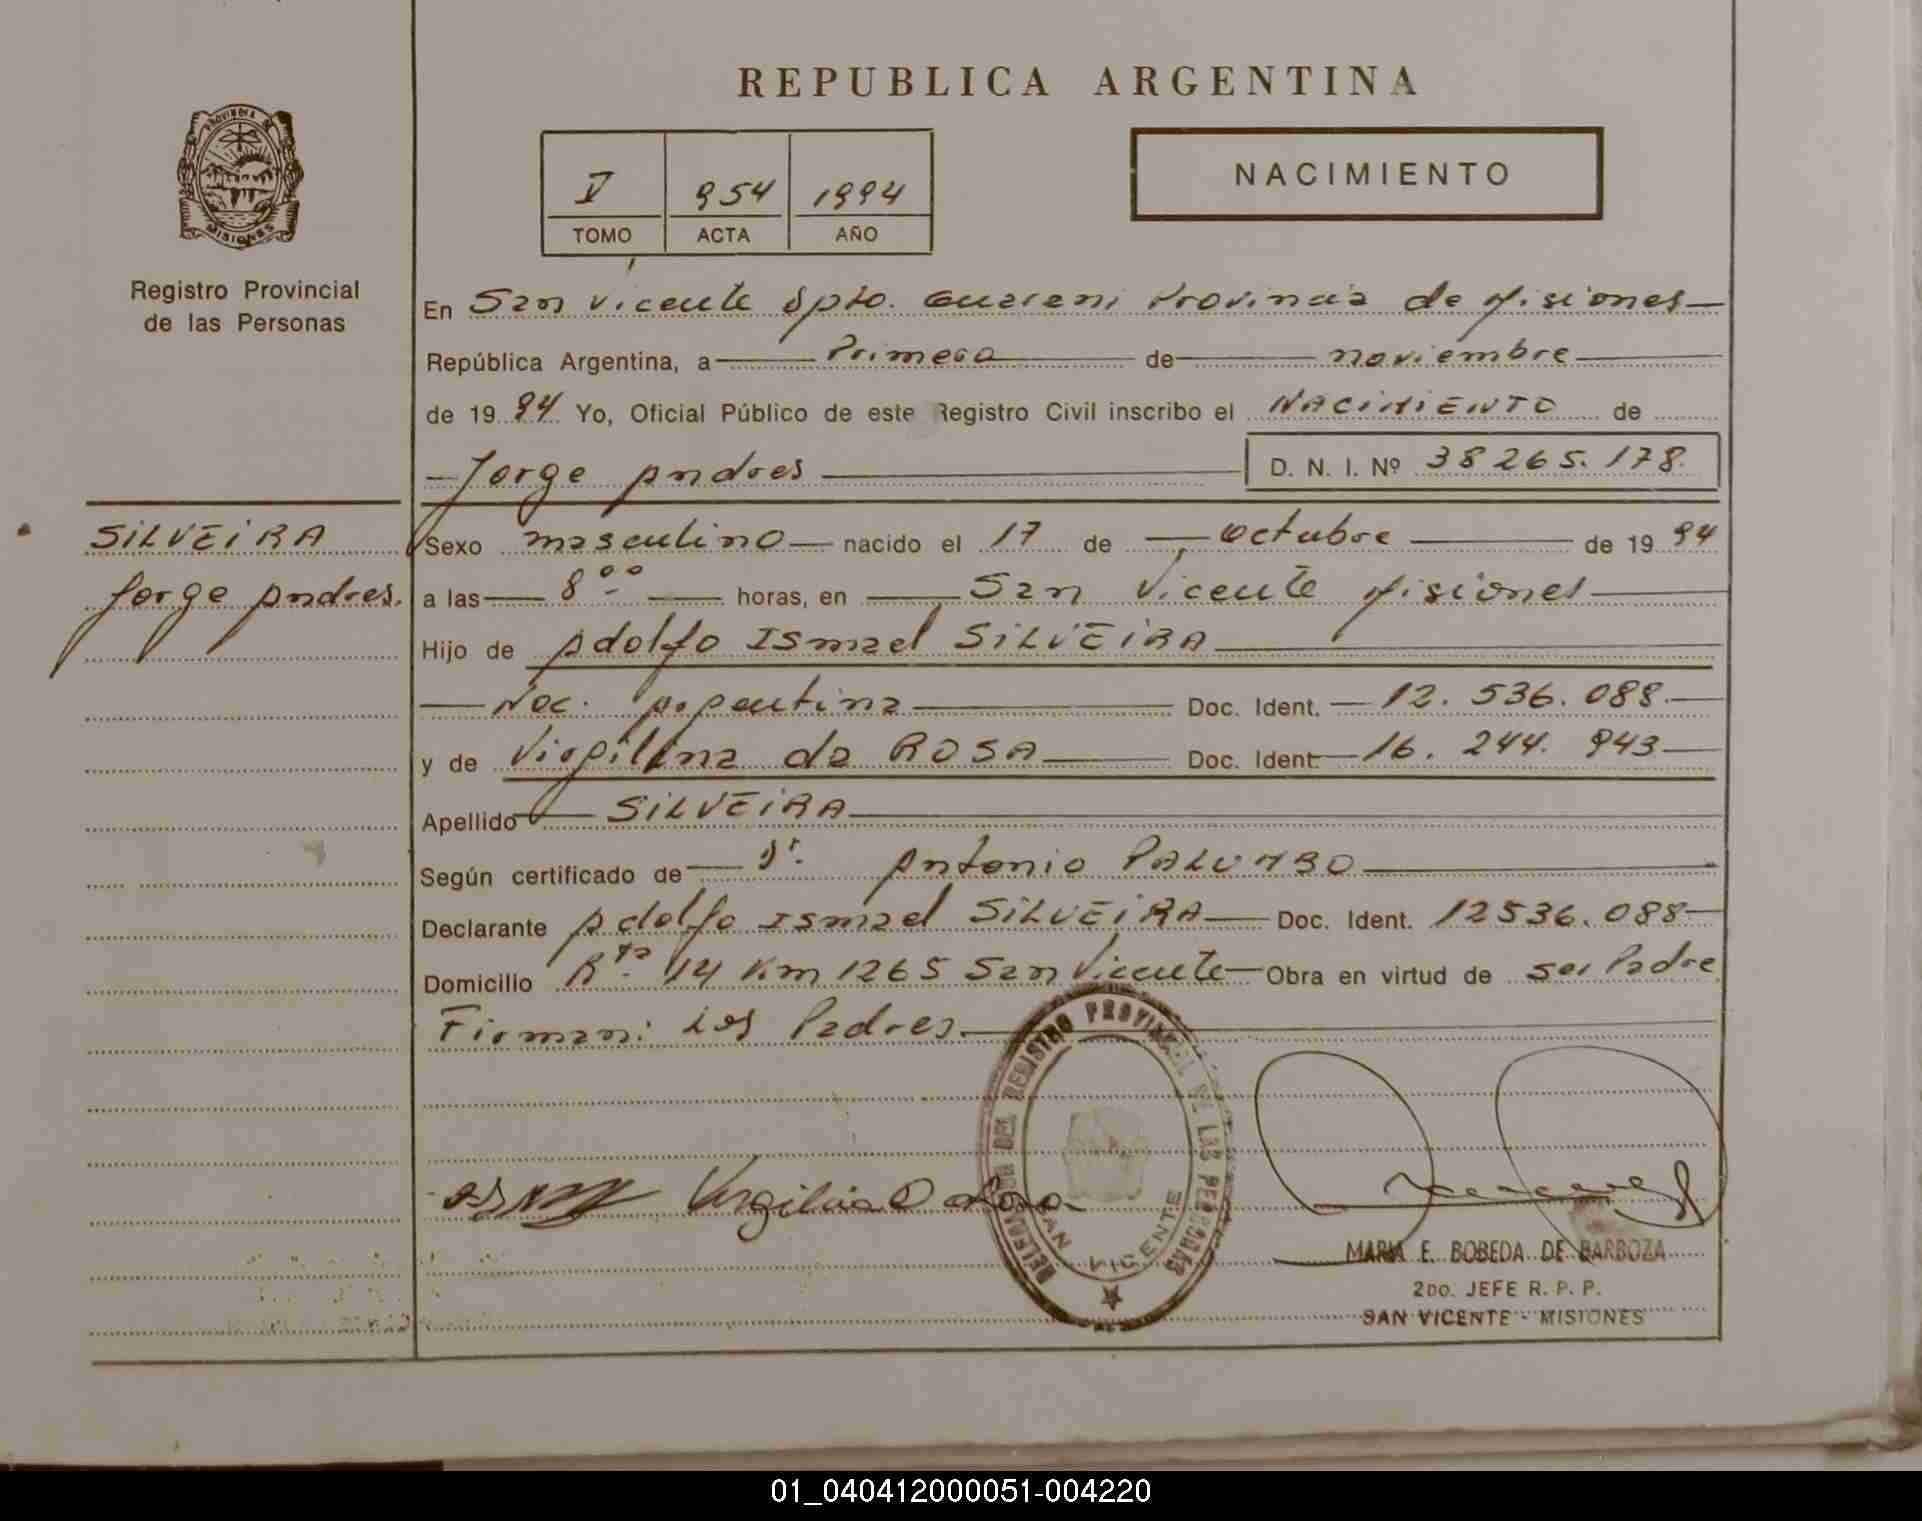 REPUBLICA ARGENTINA
PROVINCIA DE
MISIONES
Registro Provincial
de las Personas
V 954 1994
TOMO ACTA AÑO
NACIMIENTO
En San Vicente Dpto. Guarani Provincia de Misiones
República Argentina, a Primero de noviembre
de 19 94 Yo, Oficial Público de este Registro Civil inscribo el NACIMIENTO de
Jorge Andres D. N. I. Nº 38265.178.
SILVEIRA
Jorge Andres.
Sexo masculino nacido el 17 de octubre de 19 94
a las 8ºº horas, en San Vicente Misiones
Hijo de Adolfo Ismael SILVEIRA
Nac. Argentina Doc. Ident. 12.536.088.
y de Virgilina da ROSA Doc. Ident 16.244.943
Apellido SILVEIRA
Según certificado de Dr. Antonio PALUMBO
Declarante Adolfo Ismael SILVEIRA Doc. Ident. 12536.088
Domicilio Rta. 14 Km 1265 San Vicente Obra en virtud de ser Padre
Firman: Los Padres.
DELEGACION DEL REGISTRO PROVINCIAL DE LAS PERSONAS
SAN VICENTE
MARIA E. BOBEDA DE BARBOZA
2DO. JEFE R. P. P.
SAN VICENTE - MISIONES
01_040412000051-004220